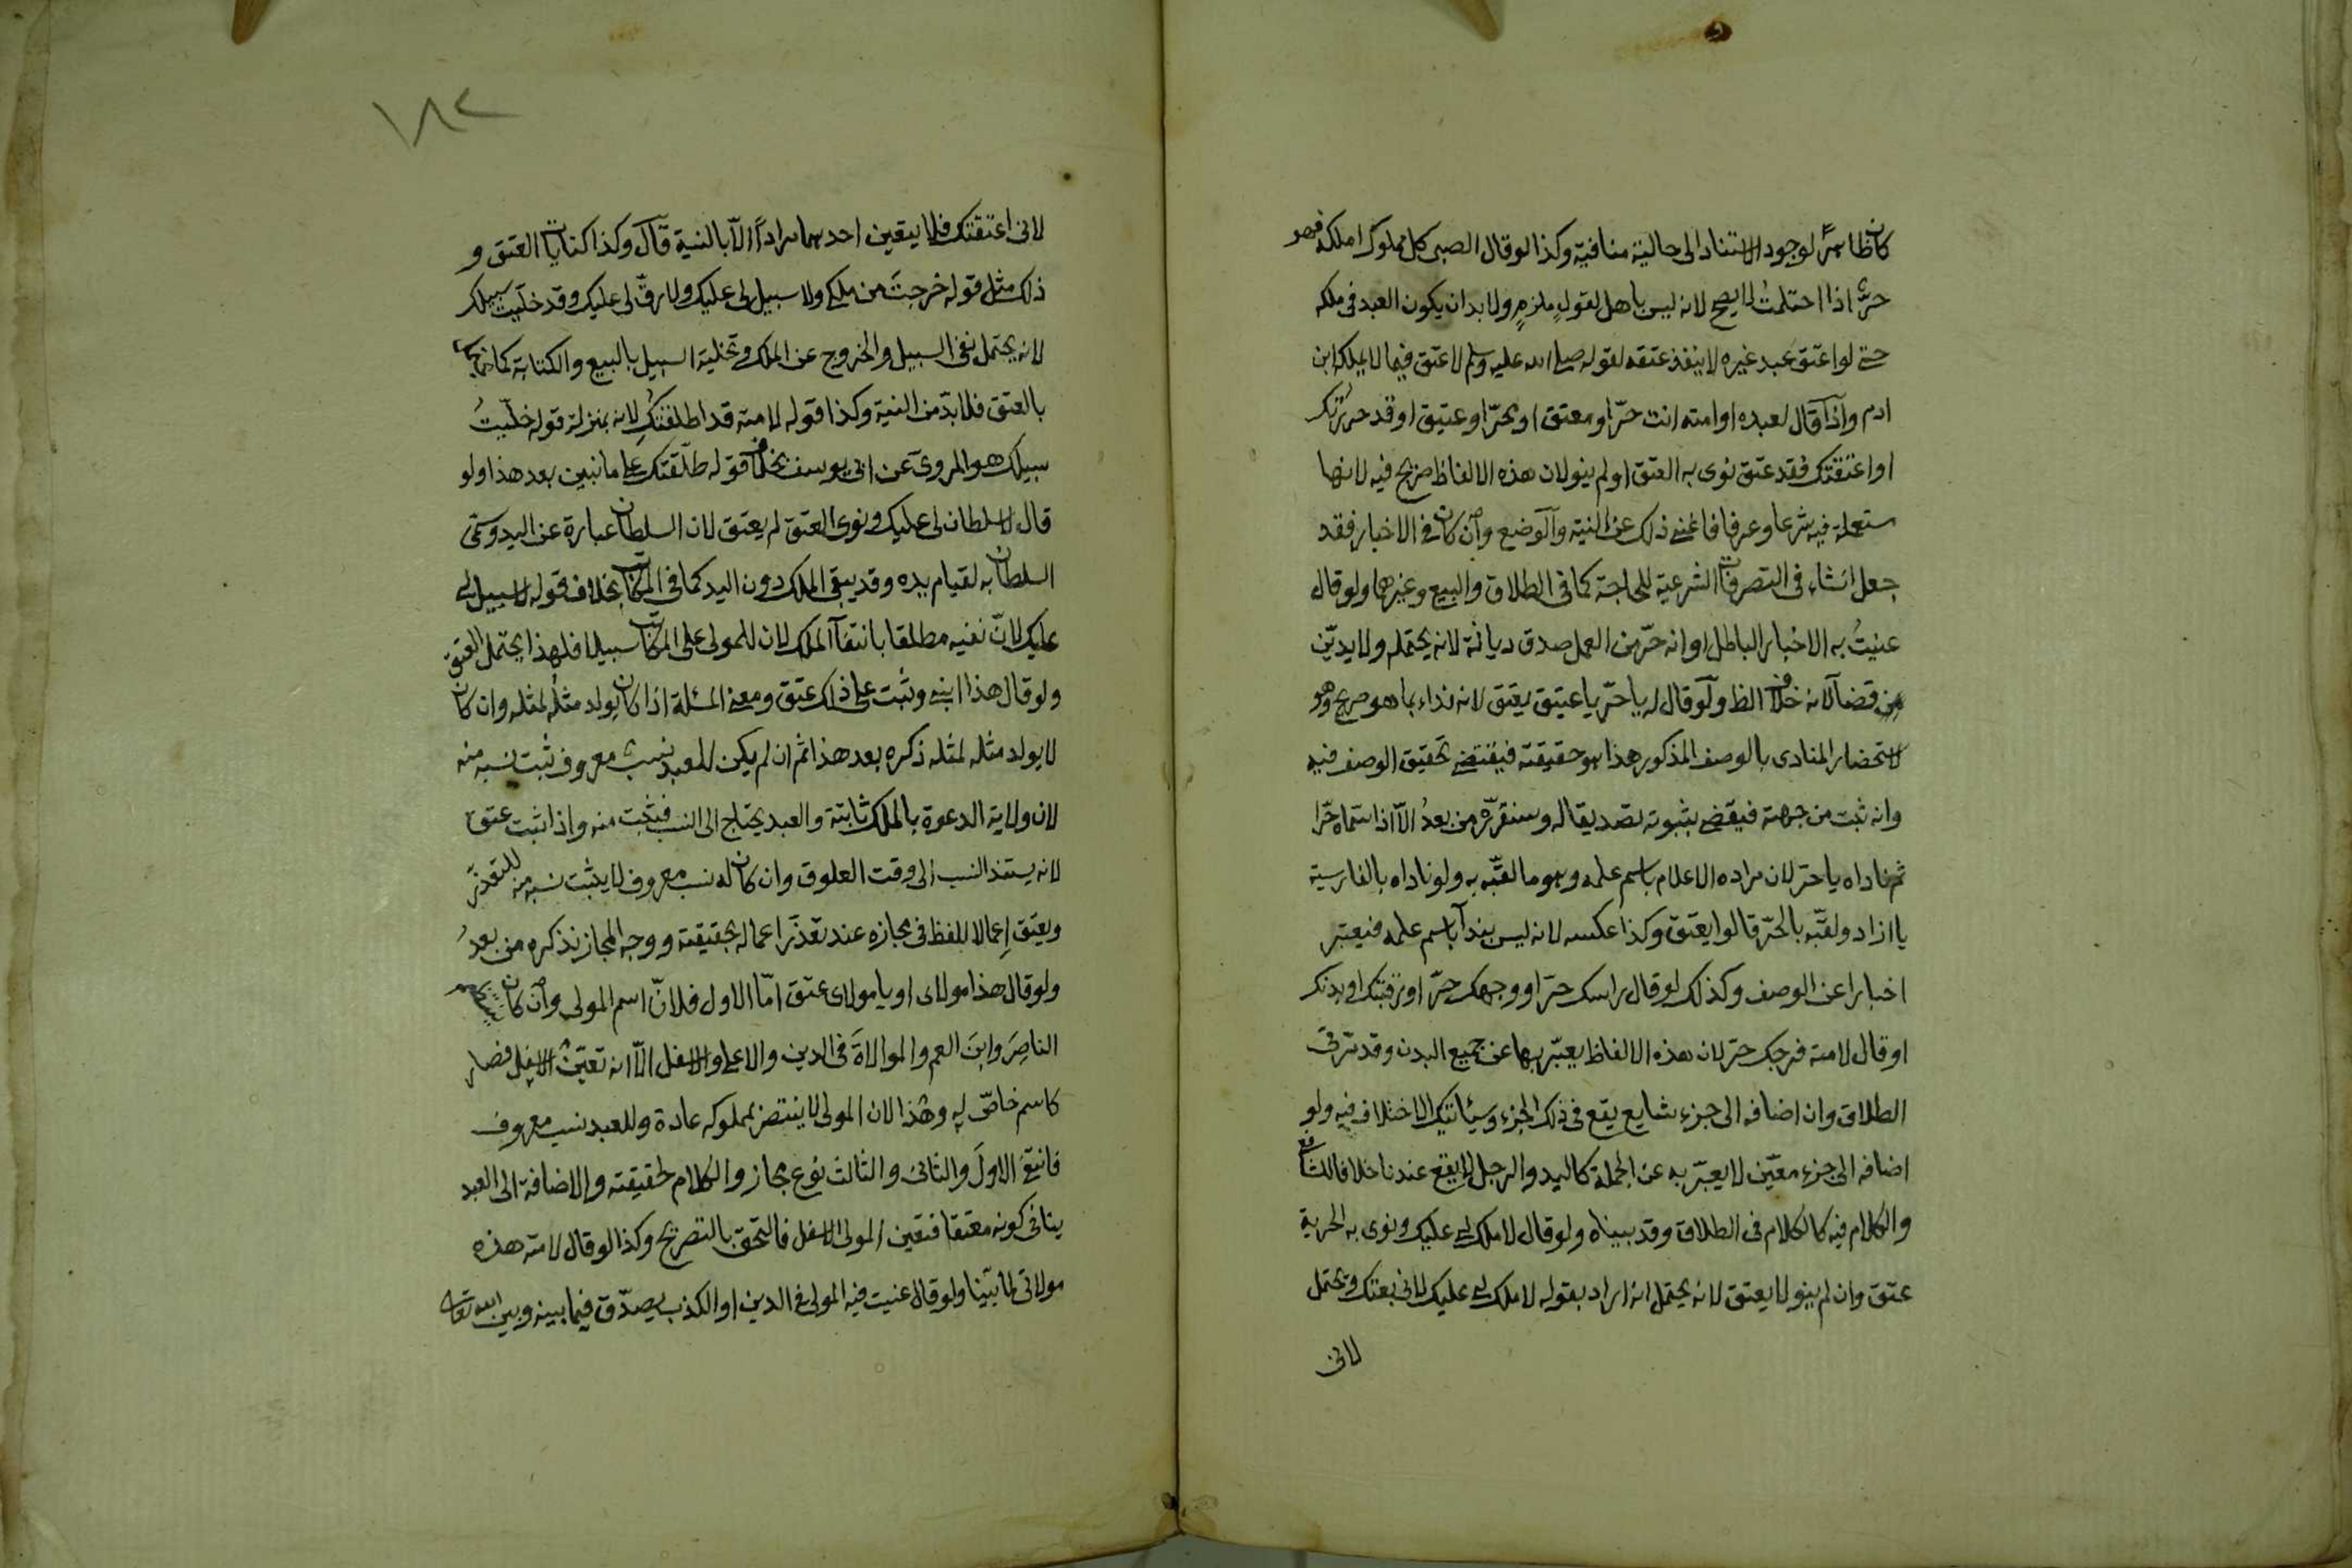 كان ظاهرًا لوجود الاستناد الى حالية منافية وكذا لو قال الصبى كل مملوك املكه فهو
حرٌّ اذا احتلمتُ لا يصح لانه ليس باهل لقولٍ ملزمٍ ولا بد ان يكون العبد فى ملكه
حتى لو اعتق عبد غيره لا ينفذ عتقه لقوله صلى الله عليه وسلم لا عتق فيما لا يملكه ابن
ادم واذا قال لعبده او امته انت حرّ او معتق او محرّر او عتيق او قد حررتك
او اعتقتك فقد عتق نوى به العتق او لم ينو لان هذه الالفاظ صريح فيه لانها
مستعملة فيه شرعا وعرفا فاغنى ذلك عن النية والوضع وان كان فى الاخبار فقد
جعل انشاء فى التصرفات الشرعية للحاجة كما فى الطلاق والبيع وغيرهما ولو قال
عنيتُ به الاخبار الباطل او انه حرّ من العمل صدق ديانة لانه يحتمله ولا يديّن
من قضآء لانه خلاف الظ ولو قال له يا حرّ يا عتيق يعتق لانه نداء بما هو صريح وهو
لاستحضار المنادى بالوصف المذكور هذا هو حقيقته فيقتضى تحقيق الوصف فيه
وانه ثبت من جهته فيقضى بثبوته تصديقا له وسنقرّره من بعدُ الاّ اذا سمّاه حرّا
ثم ناداه يا حرّ لان مراده الاعلام باسم علمه وهو ما لقّبه به ولو ناداه بالفارسية
يا ازاد ولقّبه بالحرّ قالوا يعتق وكذا عكسه لانه ليس بندآء باسم علمه فيعتبر
اخبارا عن الوصف وكذلك لو قال راسك حرّ او وجهك حرّ او رقبتك او بدنك
او قال لامته فرجك حرّ لان هذه الالفاظ يعبّر بها عن جميع البدن وقد مرّ فى
الطلاق وان اضافه الى جزء شايع يقع فى ذلك الجزء وسيأتيك الاختلاف فيه ولو
اضافه الى جزء معيّن لا يعبّر به عن الجملة كاليد والرجل لا يقع عندنا خلافا للشافع
والكلام فيه كالكلام فى الطلاق وقد بيناه ولو قال لا ملك لى عليك ونوى به الحرية
عتق وان لم ينو لا يعتق لانه يحتمل انه اراد بقوله لا ملك لى عليك لانى بعتك ويحتمل
لانى
١٨٢
لانى اعتقتك فلا يتعين احدهما مراداً الاّ بالنية قال وكذا كنايات العتق و
ذلك مثل قوله خرجتَ من ملكى ولا سبيل لى عليك ولا رقّ لى عليك وقد خليت سبيلك
لانه يحتمل نفى السبيل والخروج عن الملك وتخلية السبيل بالبيع والكتابة كما يحتمل
بالعتق فلا بدّ من النية وكذا قوله لامته قد اطلقتكِ لانه بمنزلة قوله خلّيتُ
سبيلك هو المروىّ عن ابى يوسف بخلاف قوله طلّقتك على ما نبين بعد هذا ولو
قال لا سلطان لى عليك ونوى العتق لم يعتق لان السلطان عبارة عن اليد وسمّى
السلطان به لقيام يده وقد يبقى الملك دون اليد كما فى المكاتب بخلاف قوله لا سبيل لى
عليك لانّ نفيه مطلقا بانتفآء الملك لان للمولى على المكاتب سبيلا فلهذا يحتمل العتق
ولو قال هذا ابنى وثبت على ذلك عتق ومعنى المسئلة اذا كان يولد مثله لمثله وان كان
لا يولد مثله لمثله ذكره بعد هذا ثم ان لم يكن للعبد نسبٌ معروف ثبت نسبه منه
لان ولاية الدعوة بالملك ثابتة والعبد يحتاج الى النسب فيثبت منه واذا ثبت عتق
لانه يستند النسب الى وقت العلوق وان كان له نسب معروف لا يثبت نسبه منه للتعذّر
ويعتق إعمالا للفظ فى مجازه عند تعذّر اعماله بحقيقته ووجه المجاز نذكره من بعدُ
ولو قال هذا مولاى او يا مولاى عتق امّا الاول فلانّ اسم المولى وان كان
الناصِرَ وابنَ العم والموالاةَ فى الدين والاعلى والاسفل الاّ انه تعيّن الاسفل فصار
كاسم خاصّ له وهذا لان المولى لا ينتصر بمملوكه عادة وللعبد نسب معروف
فانتفى الاولَ والثانى والثالث نوع مجاز والكلام لحقيقته والاضافة الى العبد
ينافى كونه معتقا فتعين المولى الاسفل فالتحق بالتصريح وكذا لو قال لامته هذه
مولاتى لما بيّنا ولو قال عنيت فيه المولى فى الدين او الكذب يصدّق فيما بينه وبين الله تعالى